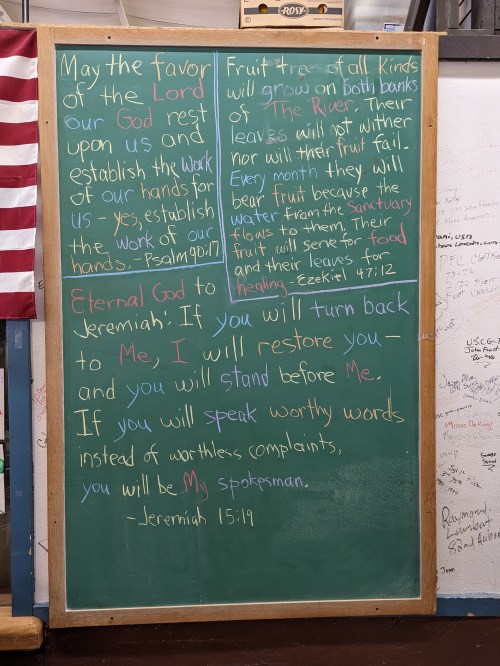 ROSY
May the favor
of the Lord
our God rest
upon us and
establish the work
of our hands for
us - yes, establish
the work of our
hands. - Psalm 90:17
Fruit trees of all kinds
will grow on both banks
of The River. Their
leaves will not wither
nor will their fruit fail.
Every month they will
bear fruit because the
water from the Sanctuary
flows to them. Their
fruit will serve for food
and their leaves for
healing - Ezekiel 47:12
Eternal God to
Jeremiah: If you will turn back
to Me, I will restore you-
and you will stand before Me.
If you will speak worthy words
instead of worthless complaints,
you will be My spokesman.
- Jeremiah 15:19
Raymond
Lambert